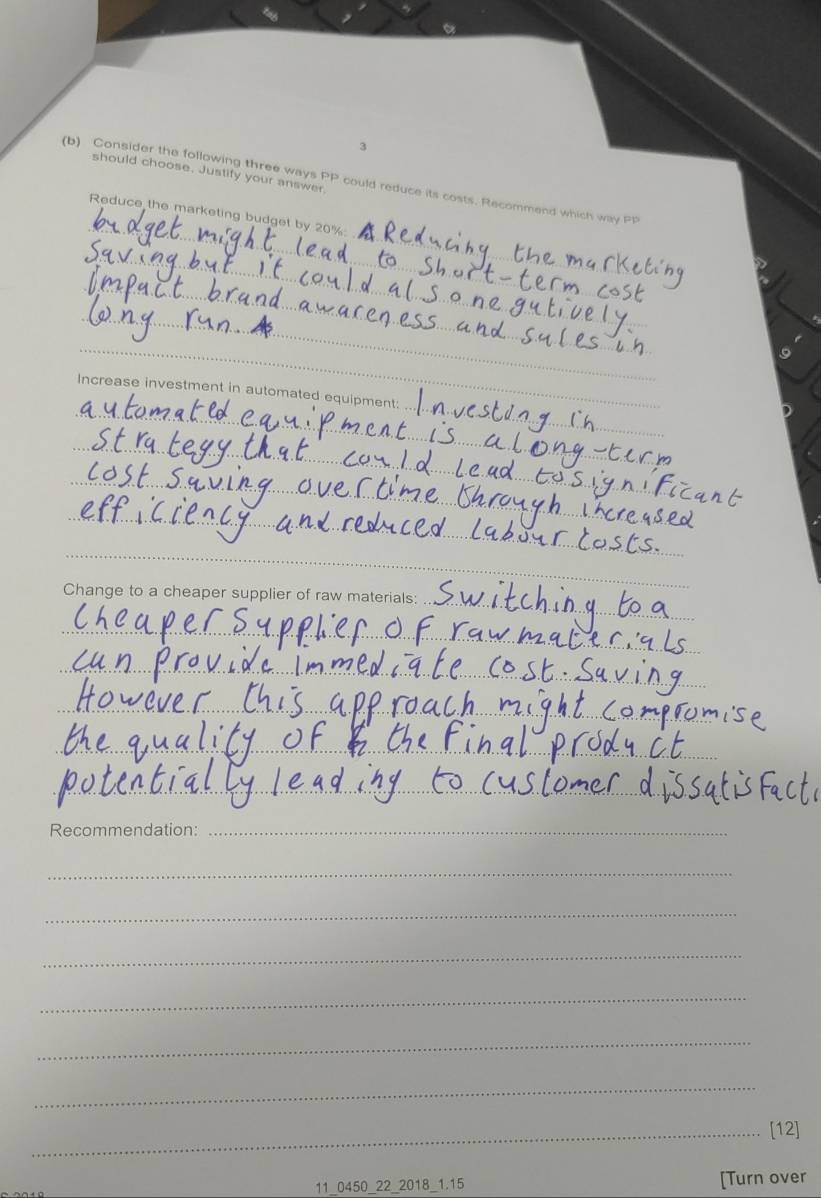 3
(b) Consider the following three ways PP could reduce its costs. Recommend which way PP
should choose. Justify your answer.
Reduce the marketing budget by 20%: Reducing the marketing
budget might lead to short-term cost
saving but it could also negutively
impact brand awareness and sales in
long run.
Increase investment in automated equipment: Investing in
automated equipment is a long-term
strategy that could lead to significant
cost saving overtime through increased
efficiency and reduced labour costs.
Change to a cheaper supplier of raw materials: Switching to a
cheaper supplier of raw materials
can provide immediate cost. saving
However this approach might compromise
the quality of the final product
potentially leading to customer dissatisfact
Recommendation:
[12]
11_0450_22_2018_1.15
[Turn over